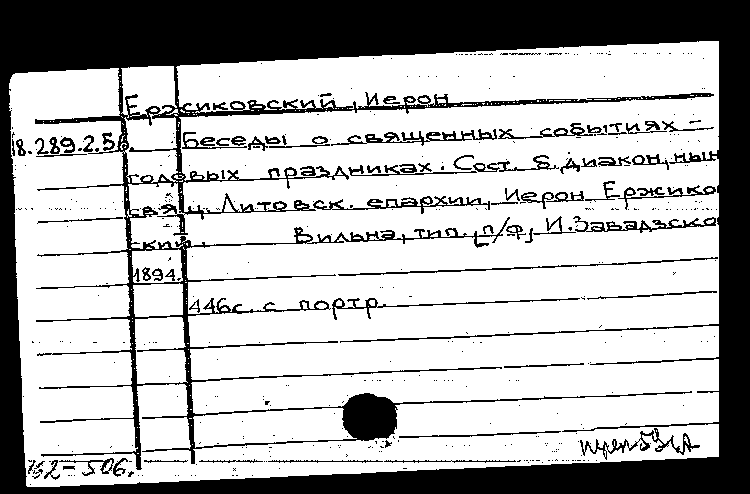 Ержиковский, Иерон
18.289.2.56.
Беседы о священных событиях -
годовых праздниках. Сост. б. диакон, нын
свящ. Литовск. епархии, Иерон Ержико
ский. Вильна, тип. [п/ф, И. Завадзско
1894.
446с. с портр.
52-506.